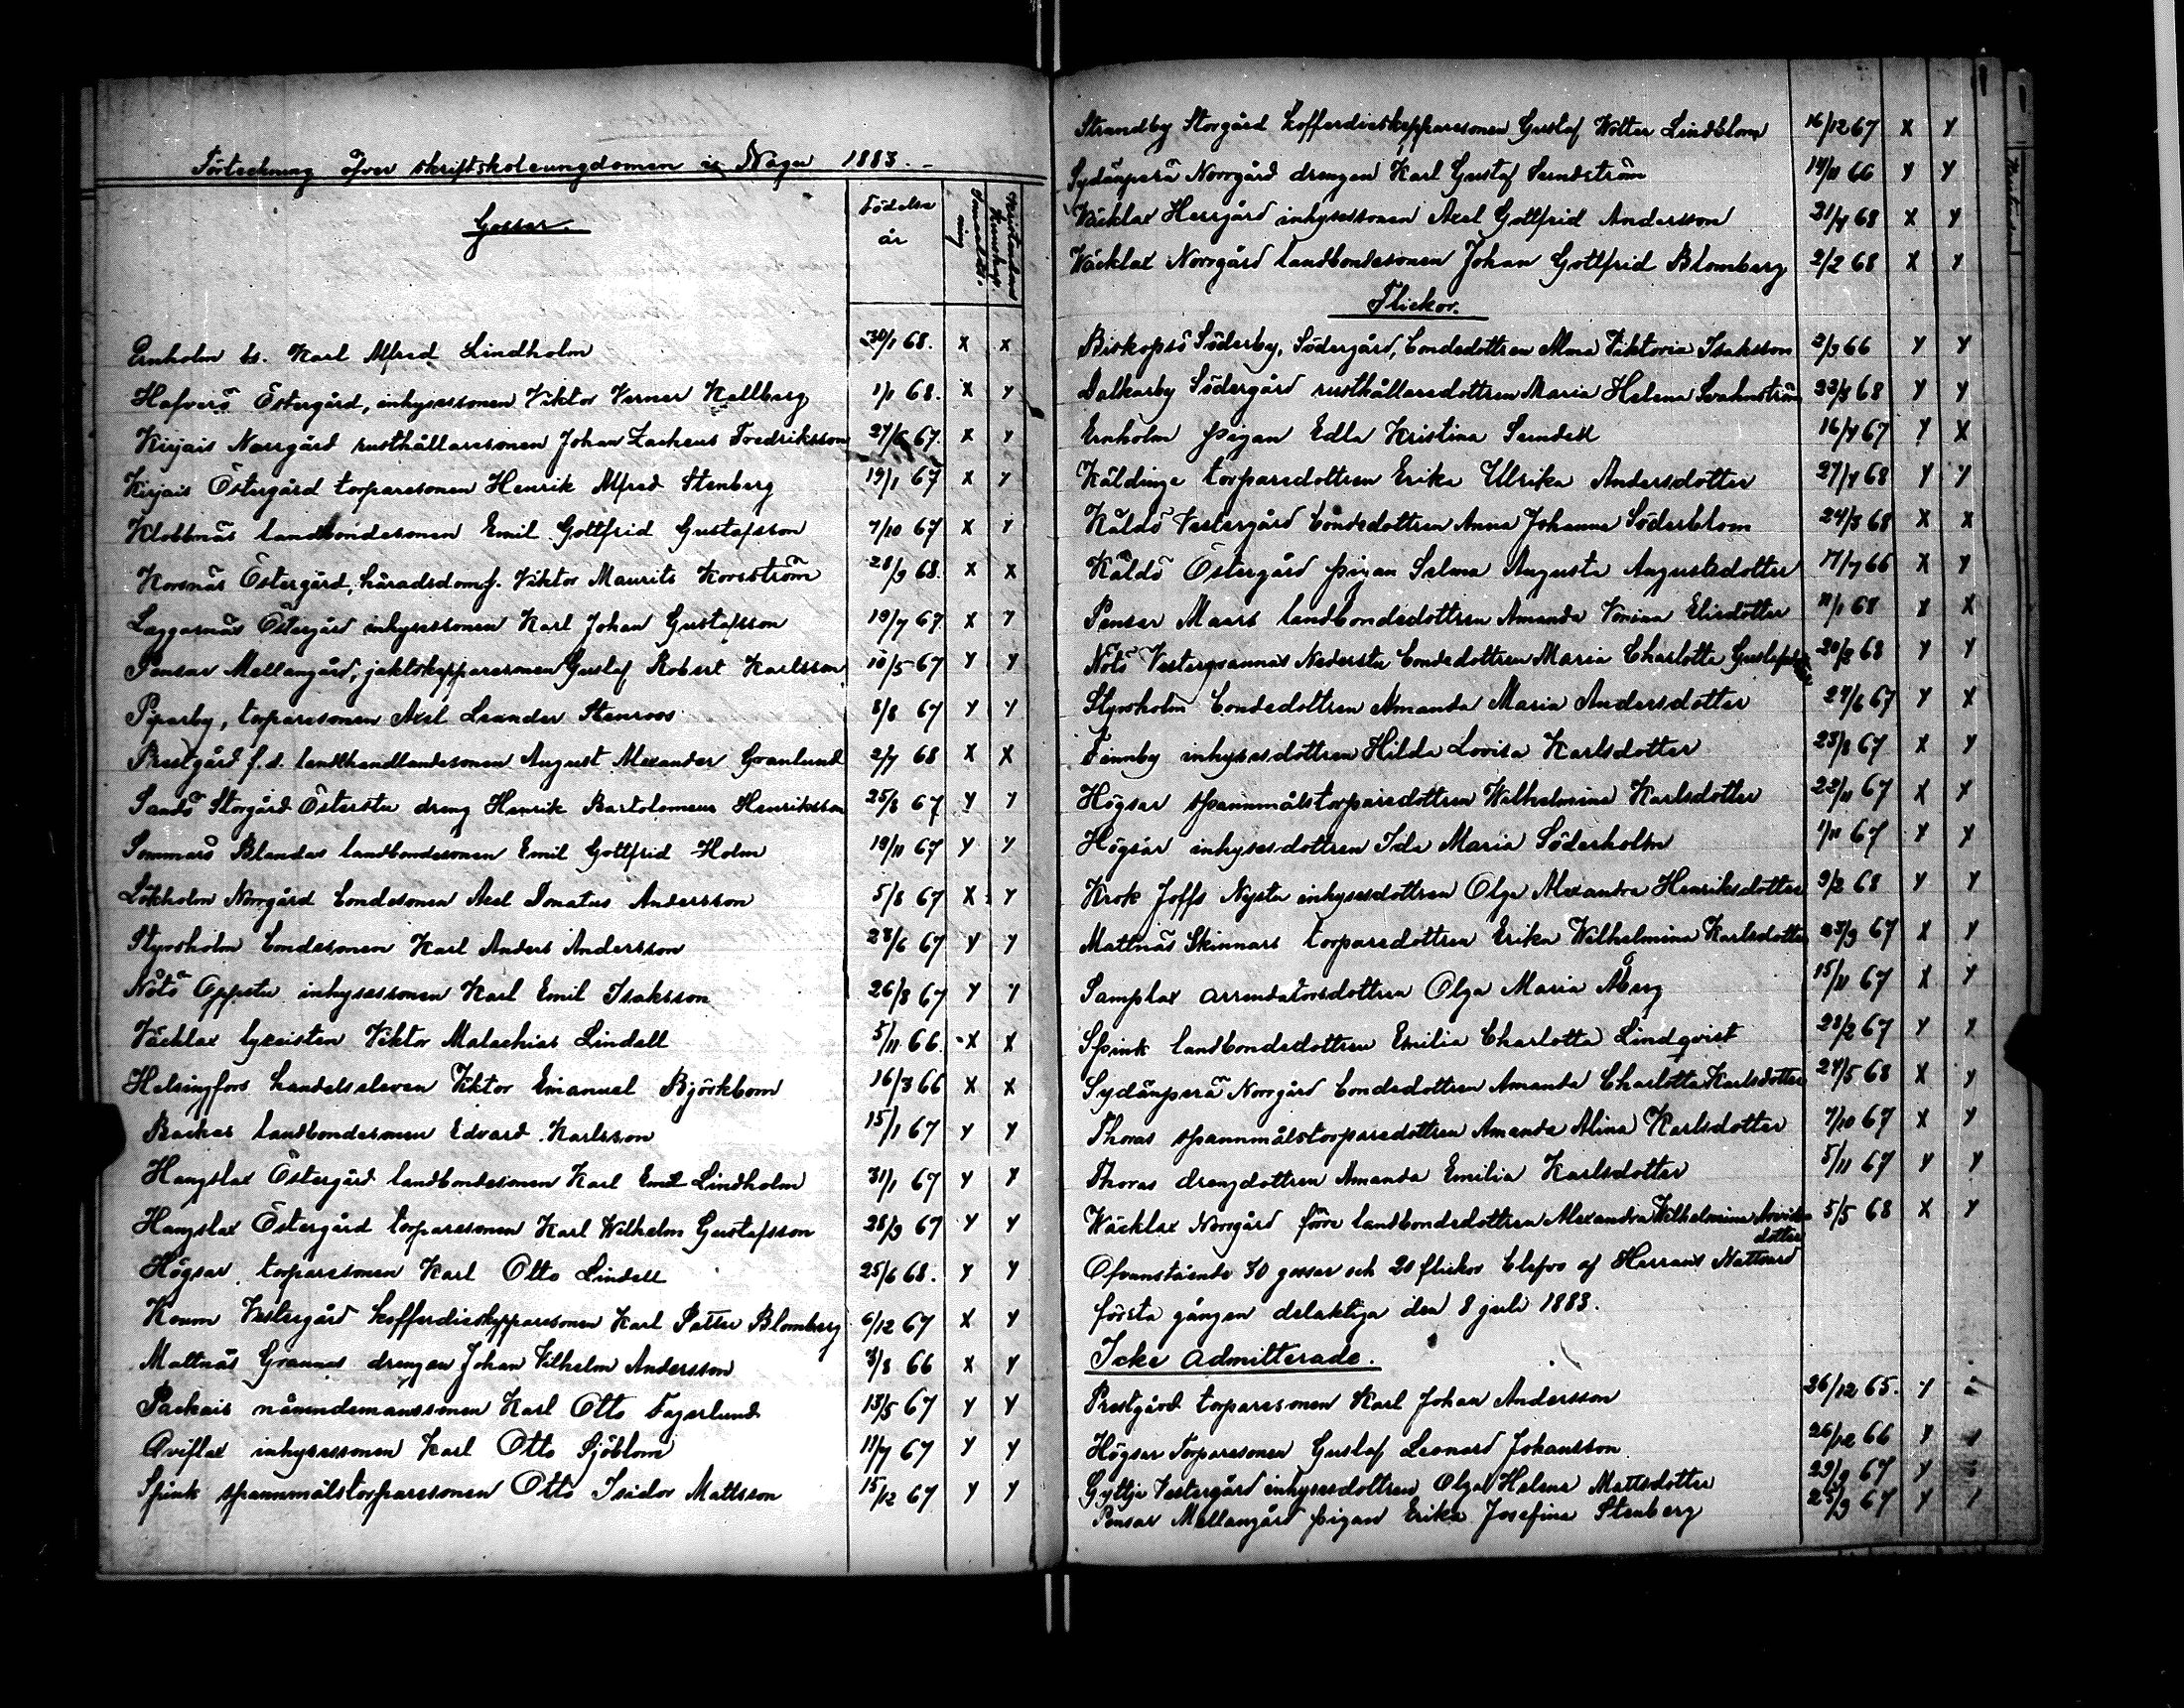 Förteckning öfver skriftskoleungdomen i Nagu 1883.
Gosser.
Födelse år
Ernholm bs. Karl Alfred Lindholm 30/1 68. x x
Hafverö Östergård, inhysessonen Viktor Verner Kallberg 1/1 68. x y
Kirjais Norrgård rusthållaresonen Johan Zacheus Fredriksson 27/6 67. x y
Kirjais Östergård torparesonen Henrik Alfred Stenberg 19/1 67 x y
Klobbnäs landbondesonen Emil Gottfrid Gustafsson 7/10 67 x y
Korsnäs Östergård, häradsdomf. Viktor Maurits Korsström 28/9 68. x x
Laggarnäs Östergård inhysessonen Karl Johan Gustafsson 19/7 67 x y
Pensar Mellangård, jaktskepparesonen Gustaf Robert Karlsson 10/5 67 y y
Piparby, torparesonen Axel Leander Stenroos 8/8 67 y y
Prestgård f.d. landthandlandesonen August Alexander Granlund 2/7 68 x x
Sandö Storgård Österstu dreng Henrik Bartolomeus Henriksson 25/8 67 y y
Sommarö Blandas landbondesonen Emil Gottfrid Holm 19/11 67 y y
Lökholm Norrgård bondesonen Axel Donatus Andersson 5/8 67 x y
Styrsholm bondesonen Karl Anders Andersson 28/6 67 y y
Nötö Oppstu inhysessonen Karl Emil Isaksson 26/8 67 y y
Väcklax lyceisten Viktor Malachias Lindell 5/11 66. x x
Helsingfors handelseleven Viktor Emanuel Björkbom 16/3 66 x x
Backas landbondesonen Edvard Karlsson 15/1 67 y y
Hangslax Östergård landbondesonen Karl Emil Lindholm 31/1 67 y y
Hangslax Östergård torparesonen Karl Wilhelm Gustafsson 28/9 67 y y
Högsar torparesonen Karl Otto Lindell 25/6 68. y y
Koum Vestergård kofferdieskepparesonen Karl Petter Blomberg 6/12 67 x y
Mattnäs Grannas drengen Johan Vilhelm Andersson 3/8 66 x y
Packais nämndemanssonen Karl Otto Fagerlund 13/5 67 y y
Qviflax inhysessonen Karl Otto Sjöblom 11/7 67 y y
Spink spannmålstorparesonen Otto Isidor Mattsson 15/12 67 y y
Strandby Storgård kofferdieskepparesonen Gustaf Wolter Lindblom 16/12 67 x y
Sydänperä Norrgård drengen Karl Gustaf Sundström 14/11 66 y y
Väcklax Herrgård inhysessonen Axel Gottfrid Andersson 21/4 68 x y
Väcklax Norrgård landbondesonen Johan Gottfrid Blomberg 2/2 68 x y
Flickor.
Biskopsö Söderby, Södergård, bondedottren Alma Viktoria Isaksson 2/9 66 y y
Dalkarby Södergård rusthållaredottren Maria Helena Svahnström 23/3 68 y y
Ernholm pigan Edla Kristina Sundell 16/4 67 y x
Käldinge torparedottren Erika Ulrika Andersdotter 27/4 68 y y
Käldö Vestergård bondedottren Anna Johanna Söderblom 24/3 68 x x
Käldö Östergård pigan Selma Augusta Augustsdotter 17/7 66 x y
Pensar Maars landbondedottren Amanda Elisdotter 11/1 68 x x
Nötö Vestergrannas Nederstu bondedottren Maria Charlotta 20/2 68 y y
Styrsholm bondedottren Amanda Maria Andersdotter 24/6 67 y x
Finnby inhysesdottren Hilda Lovisa Karlsdotter 23/8 67 x y
Högsar spannmålstorparedottren Wilhelmina Karlsdotter 22/11 67 x y
Högsar inhysesdottren Ida Maria Söderholm 1/11 67 y y
Krok Joffs Nystu inhysesdottren Olga Alexandra Henriksdotter 9/2 68 y y
Mattnäs Skinnars torparedottren Erika Wilhelmina Karlsdotter 23/9 67 x y
Samplax arrendatorsdottren Olga Maria Åberg 15/11 67 x y
Spink landbondedottren Emilia Charlotta Lindqvist 28/2 67 y y
Sydänperä Norrgård bondedottren Amanda Charlotta Karlsdotter 24/5 68 x y
Thoras spannmålstorparedottren Amanda Alina Karlsdotter 7/10 67 x y
Thoras drengdottren Amanda Emilia Karlsdotter 5/11 67 y y
Wäcklax Norrgård förre landbondedottren Alexandra Wilhelmina Arvids- 5/5 68 x y
dotter
Ofvanstående 30 gossar och 20 flickor blefvo af Herrans Nattvard
första gången delaktiga den 8 juli 1883.
Icke admitterade.
Prestgård torparesonen Karl Johan Andersson 26/12 65. y
Högsar Torparesonen Gustaf Leonard Johansson 26/12 66 y
Gyttja Vestergård inhysesdottren Olga Helena Mattsdotter 29/9 67 y
Pensar Mellangård pigan Erika Josefina Stenberg 25/9 67 y